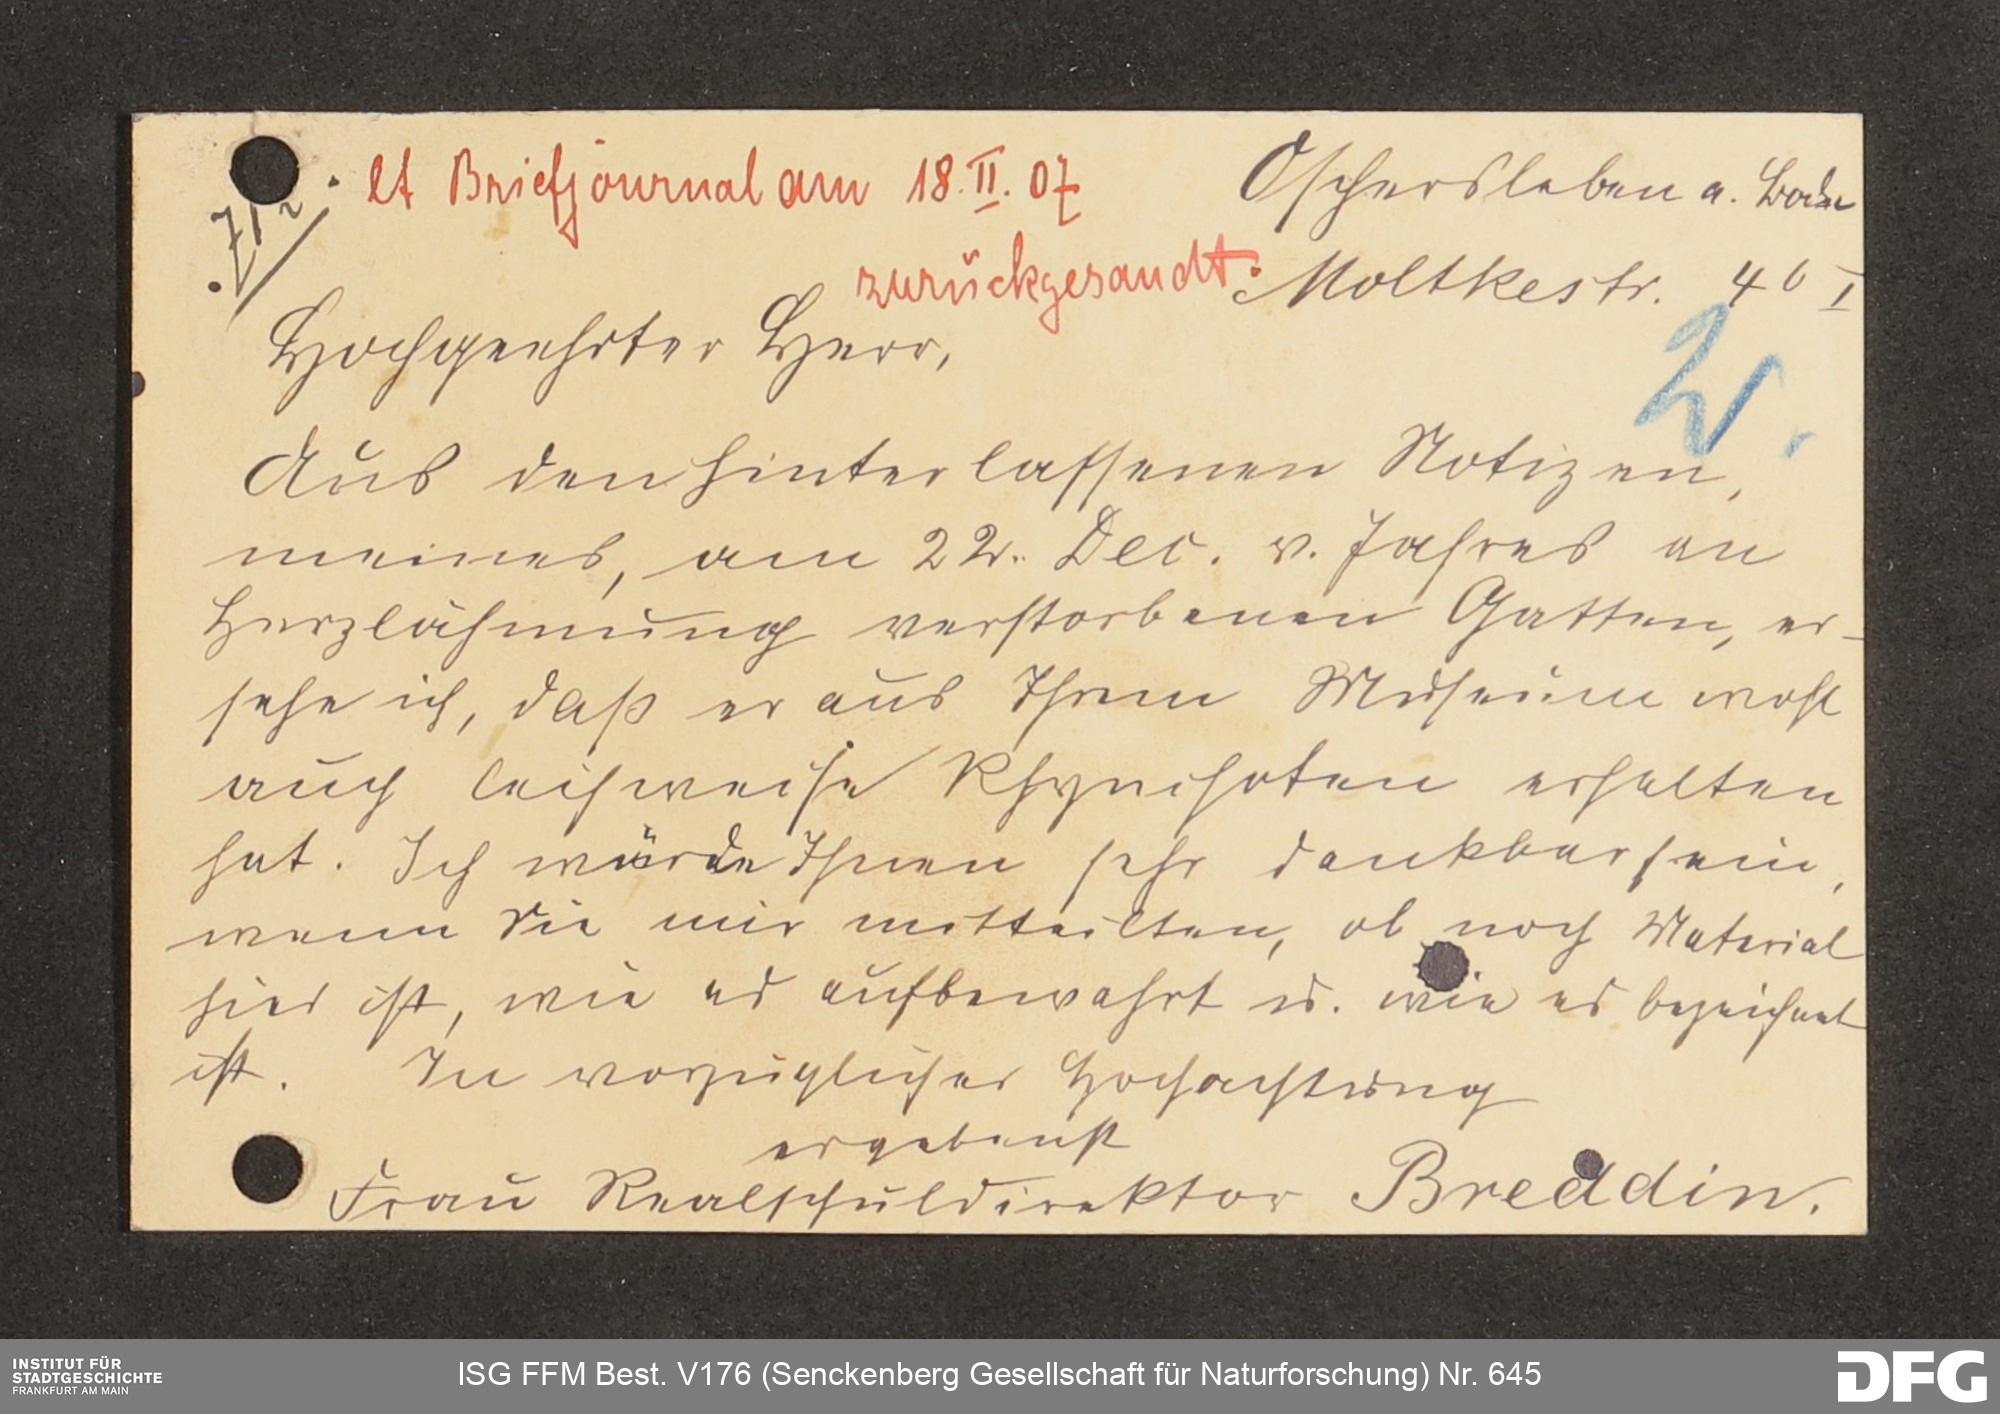 lt Briefjournal am 18. II. 07
zurückgesandt.
Oschersleben a. Bode
Moltkestr. 46 I
Hochgeehrter Herr,
Aus den hinterlassenen Notizen,
meines, am 22. Dec. v. Jahres an
Herzlähmung verstorbenen Gatten, er-
sehe ich, daß er aus Ihrem Museum wohl
auch leihweise Rhynchoten erhalten
hat. Ich würde Ihnen sehr dankbar sein,
wenn Sie mir mitteilten, ob noch Material
hier ist, wie es aufbewahrt u. wie es bezeichnet
ist. In vorzüglicher Hochachtung
ergebenst
Frau Realschuldirektor Breddin.
INSTITUT FÜR
STADTGESCHICHTE
FRANKFURT AM MAIN
ISG FFM Best. V176 (Senckenberg Gesellschaft für Naturforschung) Nr. 645
DFG